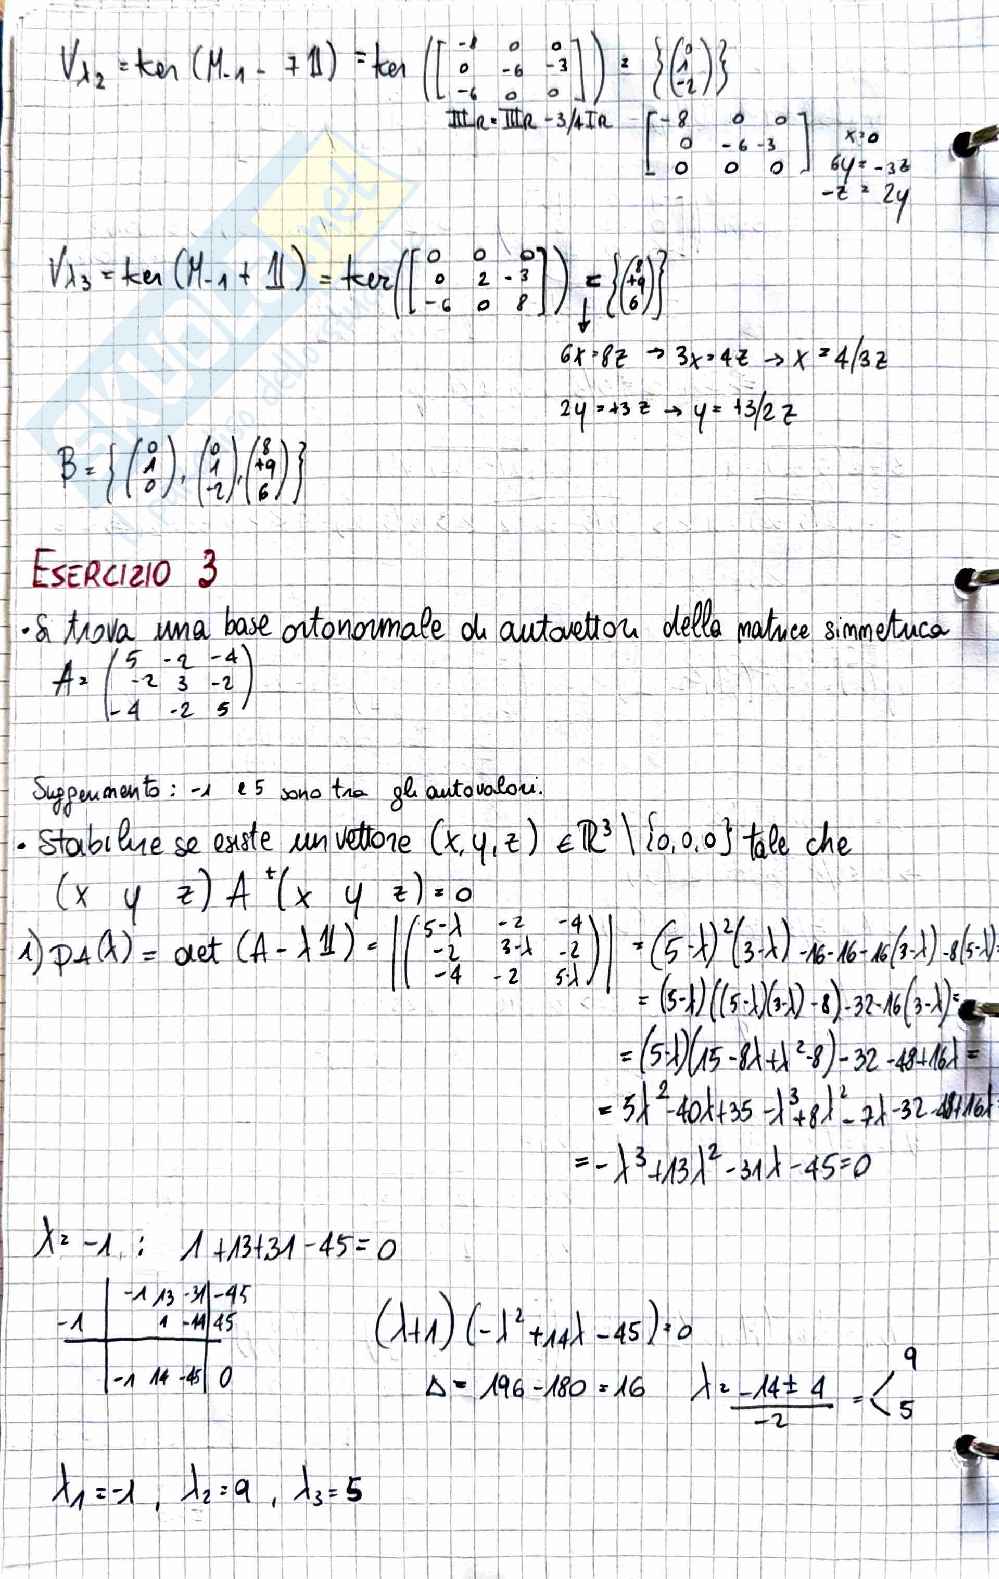 Vλ2 = ker (M-1 - 7 𝟙) = ker ([ -8 0 0 ; 0 -6 -3 ; -6 0 0 ]) = {(0 1 -2)}
IIIR = IIIR - 3/4 IR [ -8 0 0 ; 0 -6 -3 ; 0 0 0 ] x=0
6y = -3z
-z = 2y
Vλ3 = ker (M-1 + 𝟙) = ker ([ 0 0 0 ; 0 2 -3 ; -6 0 8 ]) = {(8 +9 6)}
6x=8z → 3x=4z → x = 4/3z
2y=+3z → y= +3/2 z
B = {(0 1 0), (0 1 -2), (8 +9 6)}
ESERCIZIO 3
• Si trova una base ortonormale di autovettori della matrice simmetrica
A = ( 5 -2 -4 ; -2 3 -2 ; -4 -2 5 )
Suggerimento: -1 e 5 sono tra gli autovalori.
• Stabilire se esiste un vettore (x,y,z) ∈ ℝ³ \ {0,0,0} tale che
(x y z) A ᵗ(x y z) = 0
1) PA(λ) = det (A - λ𝟙) = |( 5-λ -2 -4 ; -2 3-λ -2 ; -4 -2 5-λ )| = (5-λ)²(3-λ) -16-16-16(3-λ)-8(5-λ)=
= (5-λ)((5-λ)(3-λ)-8)-32-16(3-λ)=
= (5-λ)(15-8λ+λ²-8)-32-48+16λ =
= 5λ²-40λ+35-λ³+8λ²-7λ-32-48+16λ=
= -λ³+13λ²-31λ-45=0
λ= -1 : 1+13+31-45=0
-1 13 -31 -45
-1 1 -14 45
-1 14 -45 0
(λ+1)(-λ²+14λ-45)=0
Δ = 196-180=16 λ = -14±4 / -2 = < 9 5
λ1=-1, λ2=9, λ3=5
SKUOLA.net